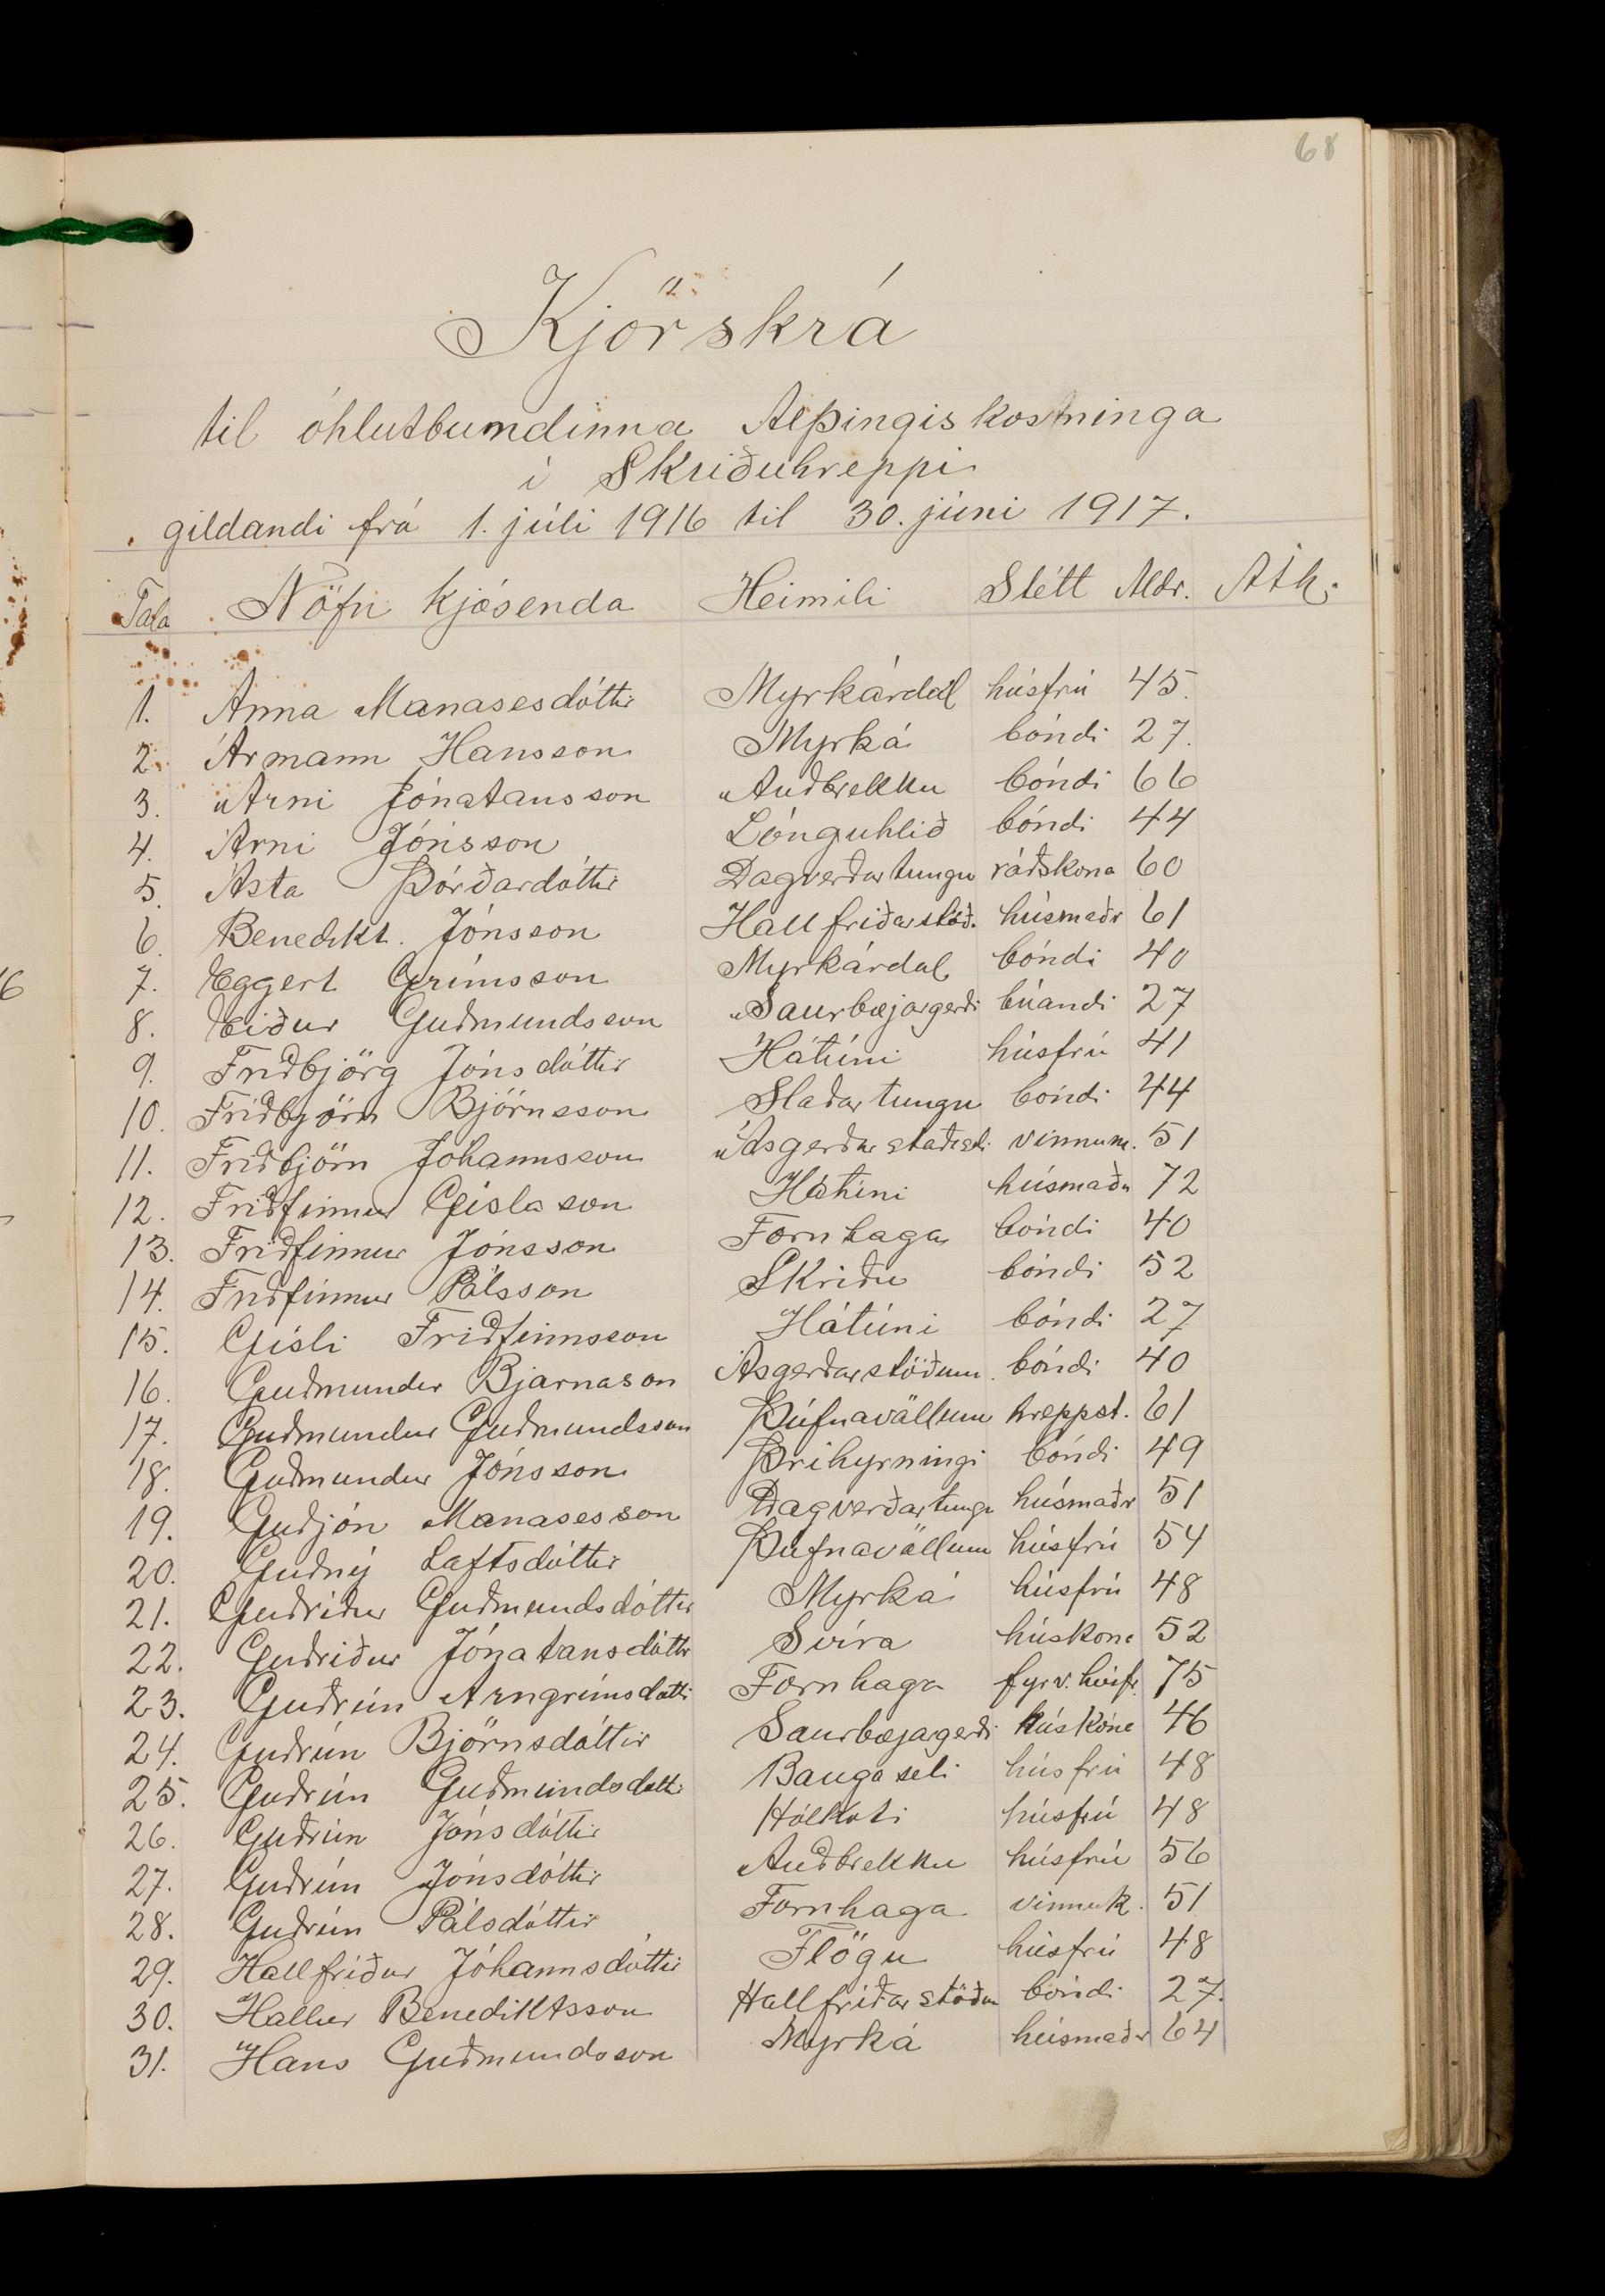 68
Kjörskrá
til óhlutbundinna Alþingiskosninga
í Skriðuhreppi
gildandi frá 1. júlí 1916 til 30. júní 1917.
Tala Nöfn kjósenda Heimili Stétt Aldr. Ath.
1. Anna Manasesdóttir Myrkárdal húsfrú 45.
2. Ármann Hansson Myrká bóndi 27.
3. Árni Jónatansson Auðbrekku bóndi 66
4. Árni Jónsson Lönguhlíð bóndi 44
5. Ásta Þórðardóttir Dagverðartungu ráðskona 60
6. Benedikt Jónsson Hallfríðarstöð. húsmaðr 61
7. Eggert Grímsson Myrkárdal bóndi 40
8. Eiður Guðmundsson Saurbæjargerði búandi 27
9. Friðbjörg Jónsdóttir Hátúni húsfrú 41
10. Friðbjörn Björnsson Staðartungu bóndi 44
11. Friðbjörn Jóhannsson Ásgerðarstaðaseli vinnum. 51
12. Friðfinnur Gíslason Hátúni húsmaðr 72
13. Friðfinnur Jónsson Fornhaga bóndi 40
14. Friðfinnur Pálsson Skriðu bóndi 52
15. Gísli Friðfinnsson Hátúni bóndi 27
16. Guðmundur Bjarnason Ásgerðarstöðum bóndi 40
17. Guðmundur Guðmundsson Þúfnavöllum hreppst. 61
18. Guðmundur Jónsson Þríhyrningi bóndi 49
19. Guðjón Manasesson Dagverðartungu húsmaðr 51
20. Guðný Loftsdóttir Þúfnavöllum húsfrú 54
21. Guðríður Guðmundsdóttir Myrká húsfrú 48
22. Guðríður Jónatansdóttir Svíra húskona 52
23. Guðrún Arngrímsdóttir Fornhaga fyrv. húsfr. 75
24. Guðrún Björnsdóttir Saurbæjagerði húskona 46
25. Guðrún Guðmundsdóttir Baugaseli húsfrú 48
26. Guðrún Jónsdóttir Hólkoti húsfrú 48
27. Guðrún Jónsdóttir Auðbrekku húsfrú 56
28. Guðrún Pálsdóttir Fornhaga vinnuk. 51
29. Hallfríður Jóhannsdóttir Flögu húsfrú 48
30. Hallur Benediktsson Hallfríðarstöðum bóndi 27.
31. Hans Guðmundsson Myrká húsmaðr 64